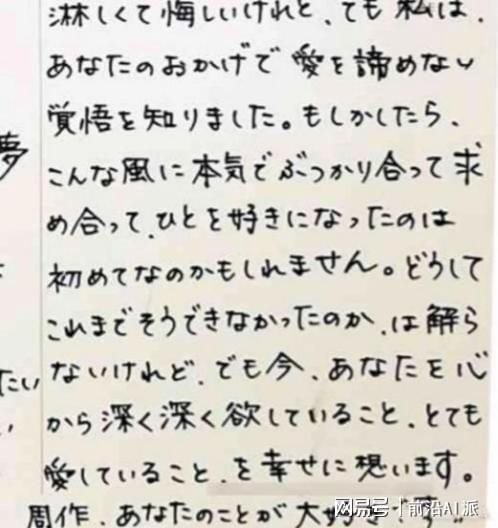 淋しくて悔しいけれど、ても私は、
あなたのおかげで愛を諦めない
覚悟を知りました。もしかしたら、
こんな風に本気でぶつかり合って求
め合って、ひとを好きになったのは
初めてなのかもしれません。どうして
これまでそうできなかったのか、は解ら
ないけれど、でも今、あなたを心
から深く深く欲していること、とても
愛していること、を幸せに想います。
周作、あなたのことが大
夢
たい
网易号 | 前沿AI派